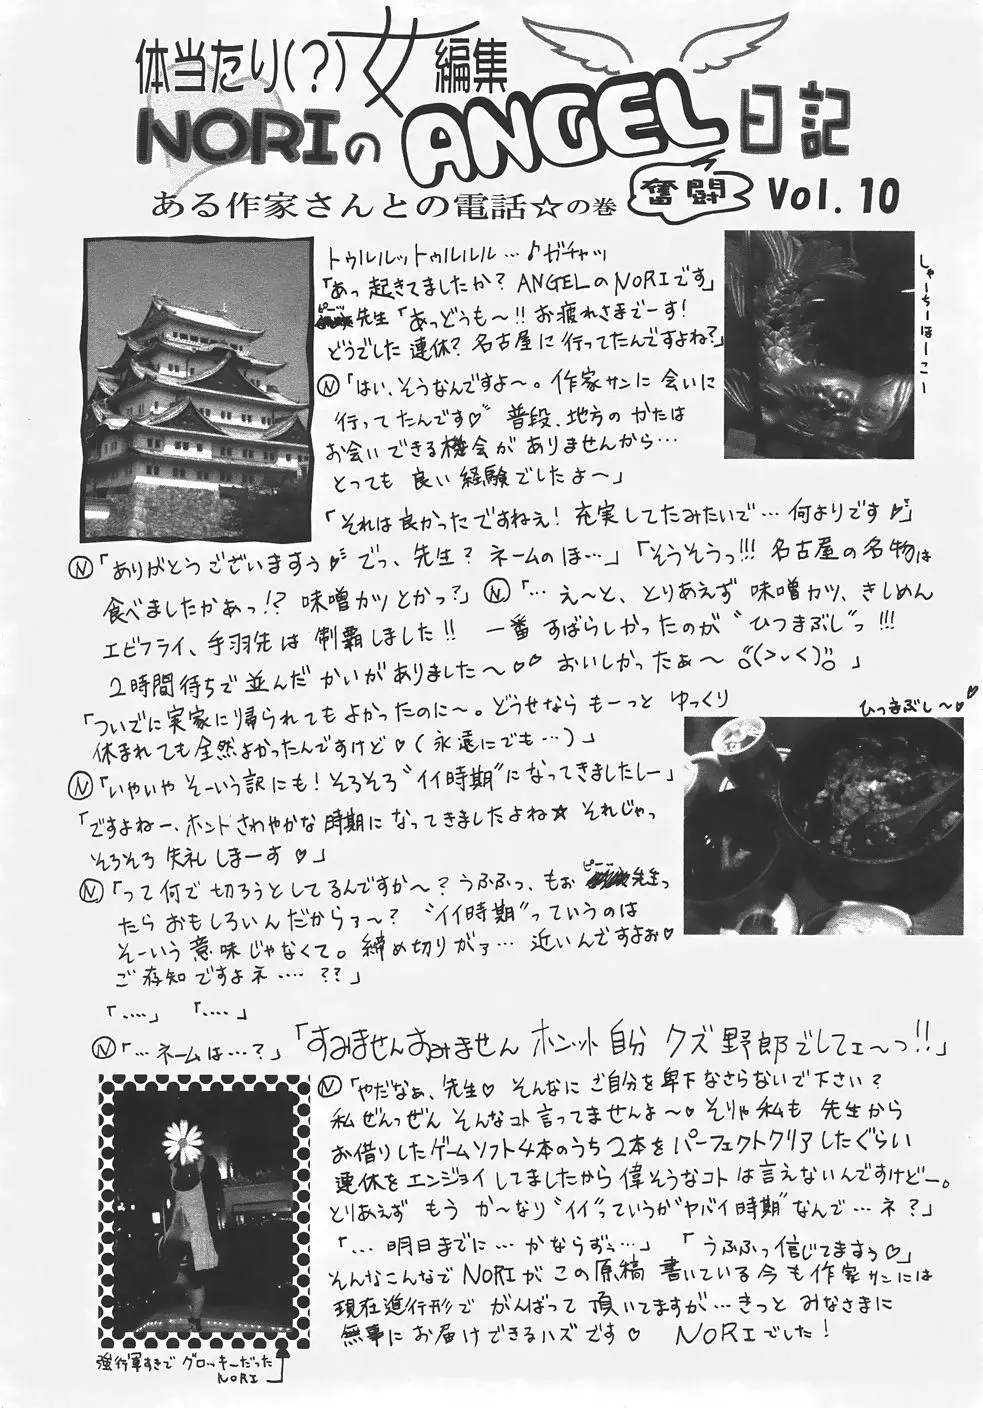 体当たり(?)女編集
NORIのANGEL日記
奮闘
Vol. 10
ある作家さんとの電話☆の巻
トゥルルットゥルルル…♪ガチャッ
「あっ起きてましたか? ANGELのNORIです」
ピーッ
先生「あっどうも〜!! お疲れさまでーす!
どうでした 連休? 名古屋に行ってたんですよね?」
Ⓝ「はい、そうなんですよ〜。作家サンに会いに
行ってたんです♡" 普段、地方のかたは
お会いできる機会がありませんから…
とっても 良い経験でしたよ〜」
しゃーちーほーこー
「それは良かったですねえ! 充実してたみたいで…何よりです♡"」
Ⓝ「ありがとうございますぅ♡" でっ、先生? ネームのほ…」「そうそうっ!!! 名古屋の名物は
食べましたかあっ!? 味噌カツとかっ?」Ⓝ「…え〜と、とりあえず 味噌カツ、きしめん
エビフライ、手羽先は制覇しました!! 一番すばらしかったのが"ひつまぶし"っ!!!
2時間待ちで並んだかいがありました〜♡♡ おいしかったぁ〜 (>﹏<) 」
「ついでに実家に帰られてもよかったのに〜。どうせなら もーっと ゆっくり
休まれても全然よかったんですけど♡(永遠にでも…)」
ひつまぶし〜♡♡
Ⓝ「いやいや そーいう訳にも! そろそろ"イイ時期"になってきましたしー」
「ですよねー、ホントさわやかな時期になってきましたよね☆ それじゃっ
そろそろ 失礼しまーす♡」
Ⓝ「って何で切ろうとしてるんですか〜? うふふっ、もぉ ピーッ 先生っ
たらおもしろいんだからァ〜? "イイ時期"っていうのは
そーいう意味じゃなくて。締め切りがァ… 近いんですよぉ♡
ご存知ですよネ‥‥??」
「‥‥」 「‥‥」
Ⓝ「…ネームは…?」「すみませんすみません ホント自分 クズ野郎でしてェ〜っ!!」
Ⓝ「やだなぁ、先生♡ そんなにご自分を卑下なさらないで下さい?
私ぜんっぜん そんなコト言ってませんよ〜♡ そりゃ私も 先生から
お借りしたゲームソフト4本のうち2本をパーフェクトクリアしたぐらい
連休をエンジョイしてましたから偉そうなコトは言えないんですけどー。
とりあえず もう か〜なり"イイ"っていうか"ヤバイ時期"なんで…ネ?」
「…明日までに…かならずぃ…」 「うふふっ信じてますぅ♡」
そんなこんなでNORIがこの原稿 書いている今も作家サンには
現在進行形で がんばって頂いてますが…きっと みなさまに
無事にお届けできるハズです♡ NORIでした!
強行軍すぎで グロッキーだった
NORI